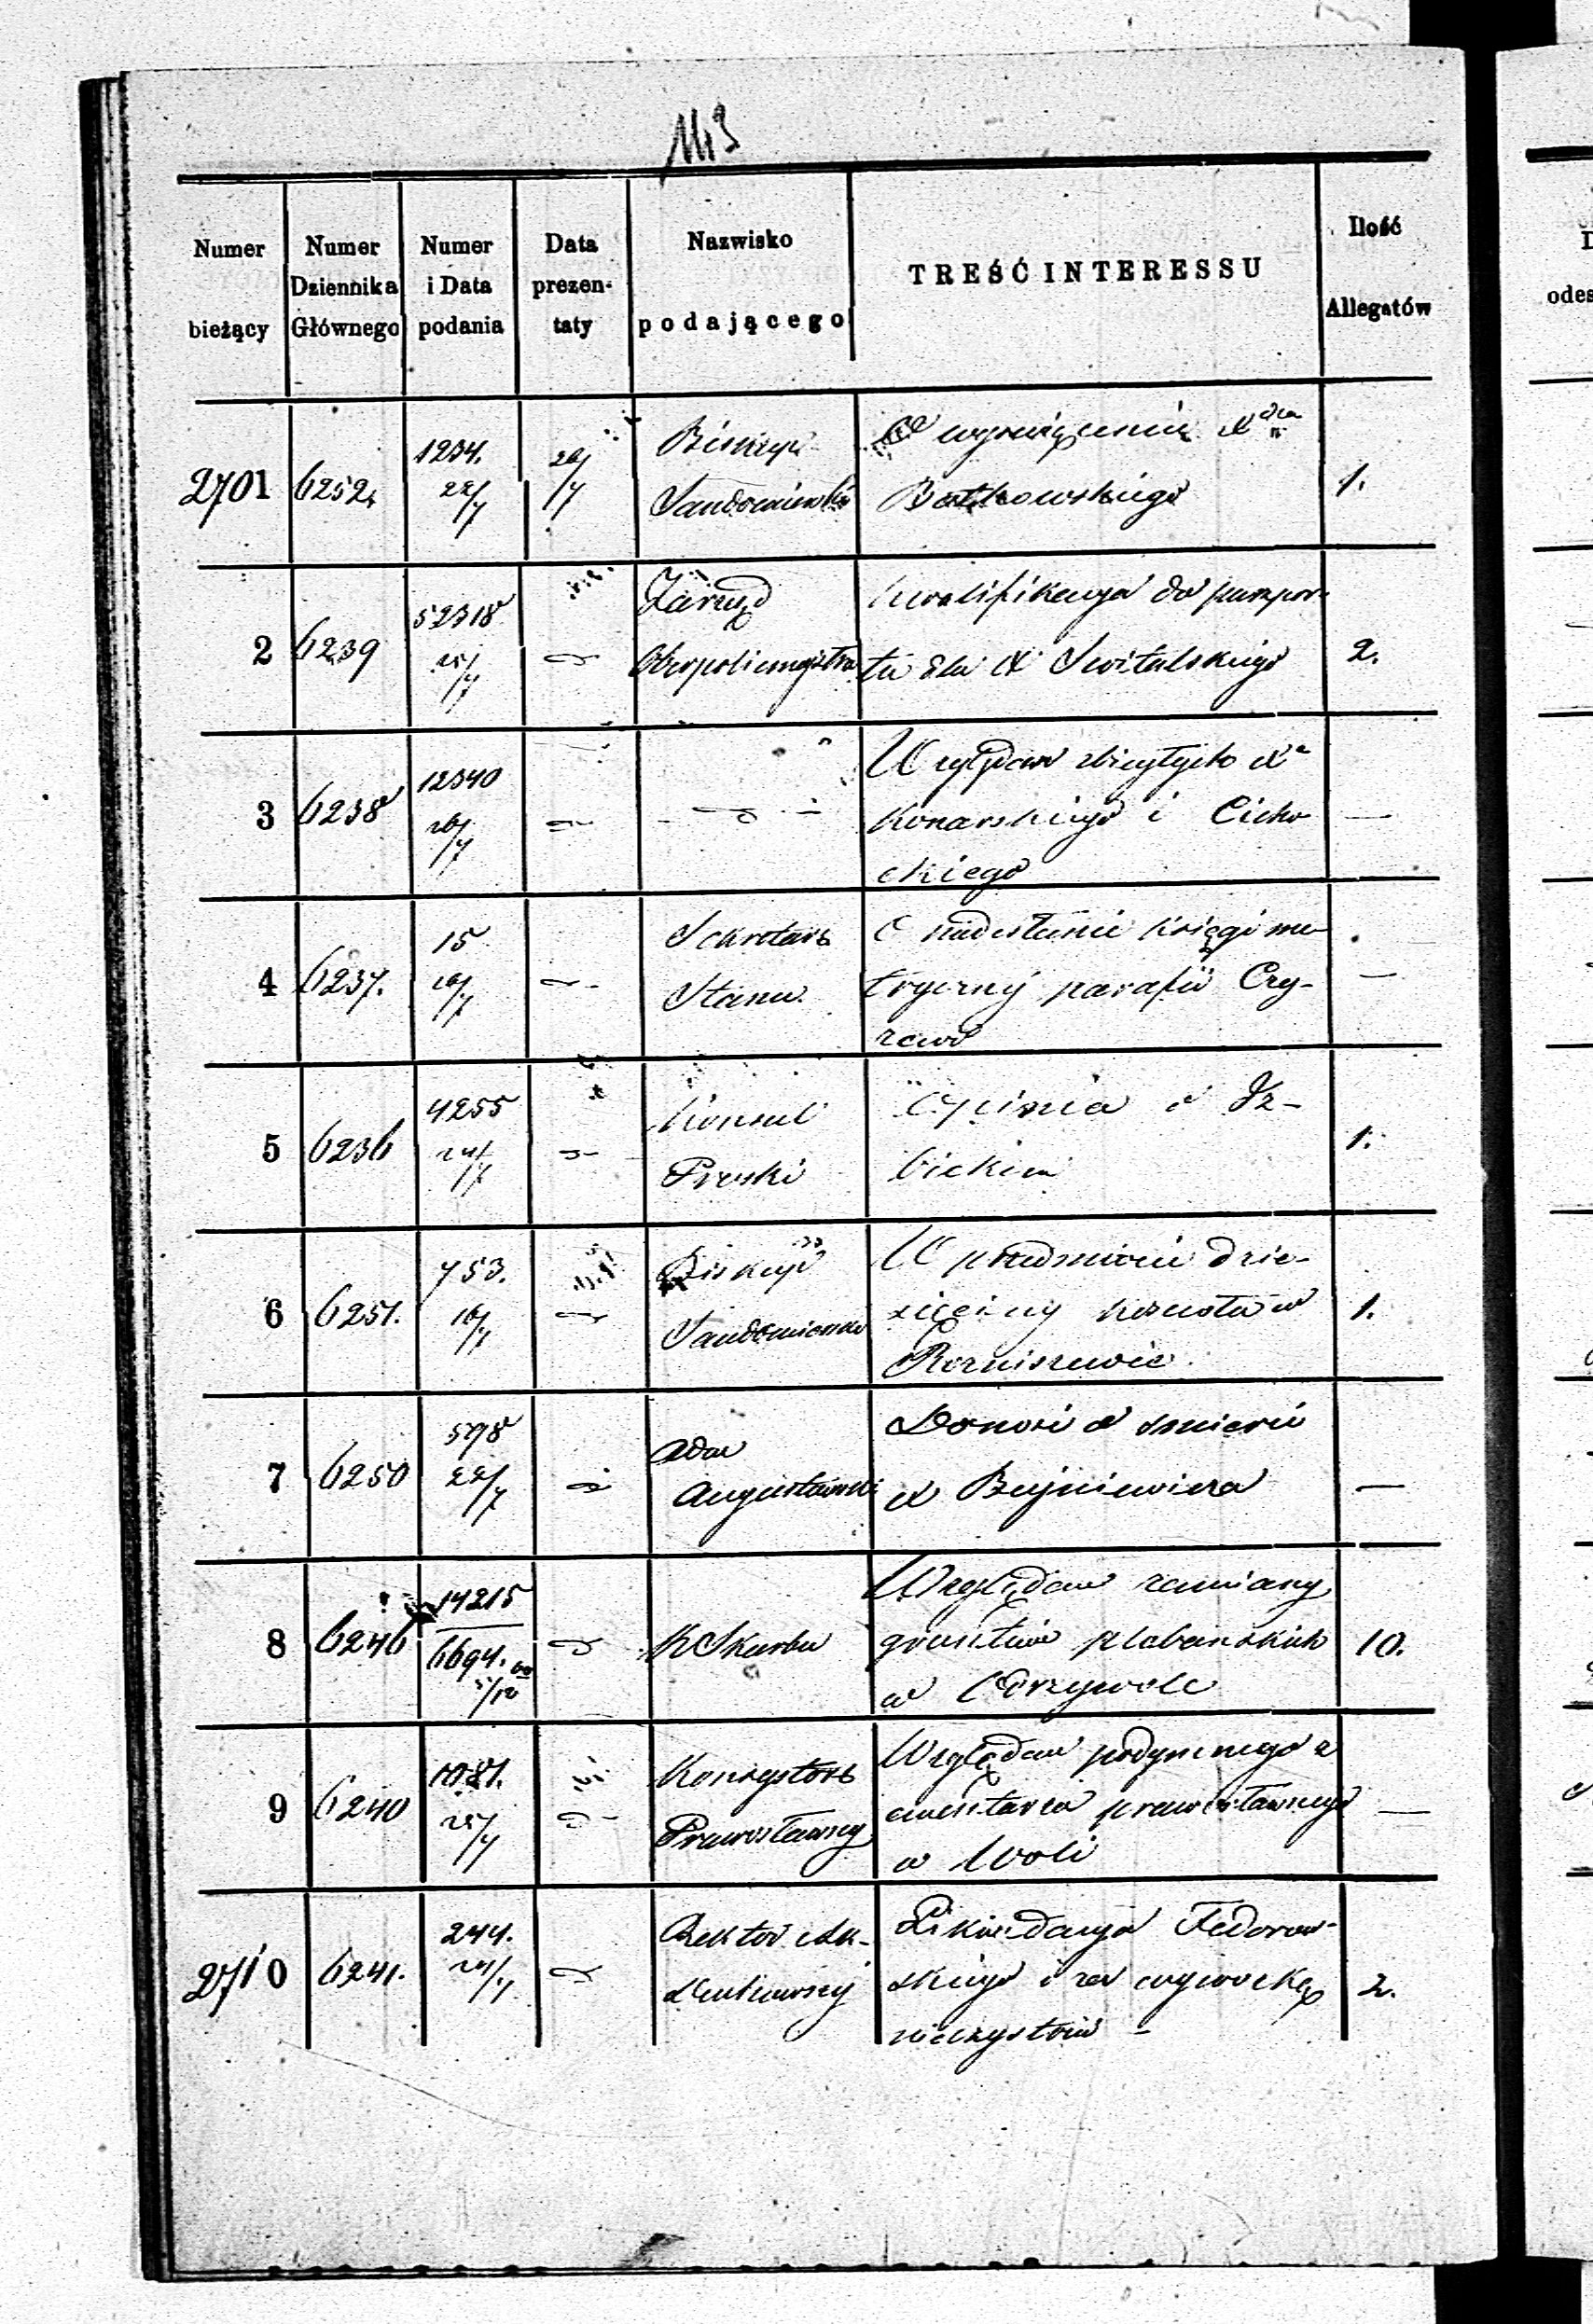 1113
Numer bieżący
Numer Dziennika Głównego
Numer i Data podania
Data prezen- taty
Nazwisko podającego
TREŚĆ INTERESSU
Ilość Allegatów
2701 6252. 1234. 22/7 26/7 Biskup Sandomierski
O wyświęceniu Xdza
Batkowskiego
1.
2 6239 52318 25/7 Zarząd Oberpolicmajstra
kwalifikacya do paszpor-
tu dla X Switalskiego
2.
3 6238 12340 26/7
Względem zbiegłych Xa
Konarskiego i Cicho
ckiego
—
4 6237. 15 26/7 Sekretarz Stanu.
O nadesłanie księgi me-
trycznej parafii Czy-
zewo
—
5 6236 4255 24/7 Konsul Pruski
Opinia o Iz-
bickim
1.
6 6251. 753. 16/7 Biskup Sandomierski
W przedmiocie dzie-
sięciny kościoła w
Rozniszewie
1.
7 6250 598 22/7 Adm Augustowski
Donosi o śmierci
X Bujniewicza
—
8 6246 14215 6694. 5/12 K Skarbu
Względem zamiany
gruntów plebańskich
w Dorzywole
10.
9 6240 1081. 25/7 Konsystorz Prawosławny
Względem podymnego z
cmentarza prawosławnego
w Woli
—
2710 6241. 244. 24/7 Rektor Ak- Duchownej
Likwidacya Fedorow-
skiego i za wywózkę
nieczystości
2.